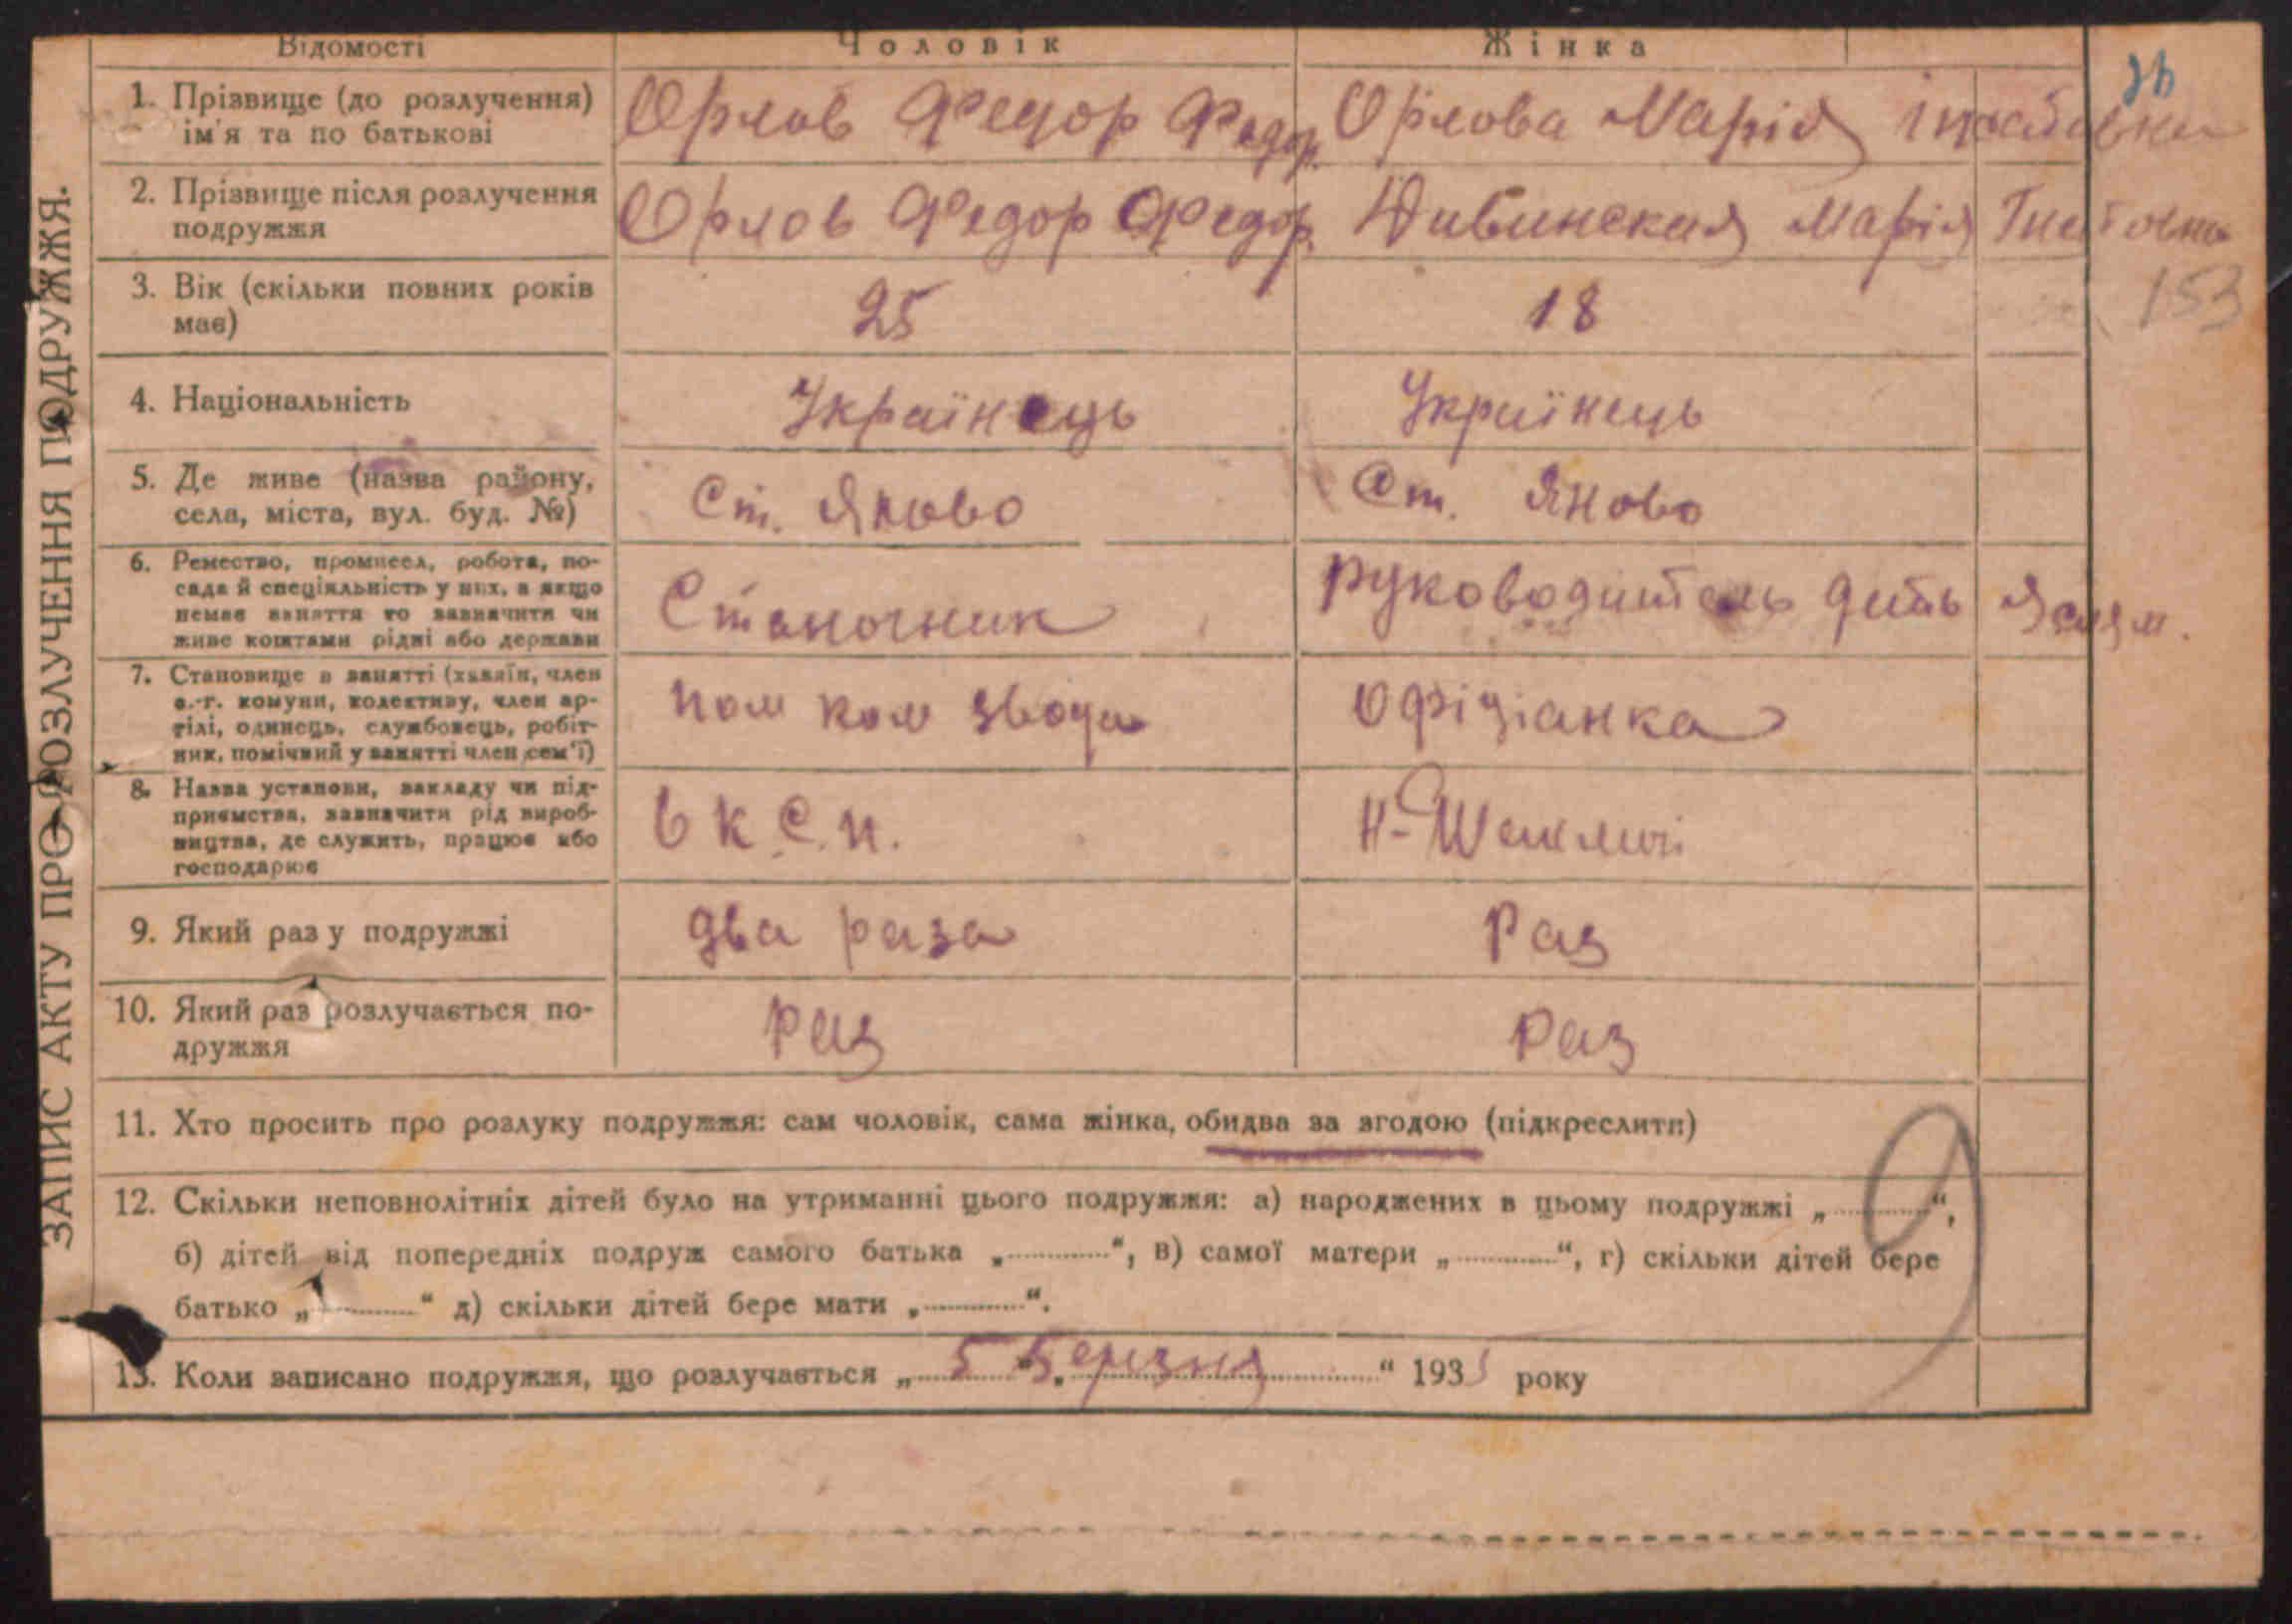 ЗАПИС АКТУ ПРО РОЗЛУЧЕННЯ ПОДРУЖЖЯ.
Відомості Чоловік Жінка
1. Прізвище (до розлучення) ім'я та по батькові
Орлов Федор Федор. Орлова Марія
2. Прізвище після розлучення подружжя
Орлов Федор Федор. Дивинская Марія Гнатовна
153
3. Вік (скільки повних років має)
25 18
4. Національність
Українець Українець
5. Де живе (назва району, села, міста, вул. буд. №)
Ст. Яново Ст. Яново
6. Ремество, промисел, робота, посада й спеціяльність у них, а якщо немає заняття то зазначити чи живе коштами рідні або держави
Станочник руководитель дить
7. Становище в занятті (хазяїн, член с.-г. комуни, колективу, член артілі, одинець, службовець, робітник, помічний у занятті член сем'ї)
пом ком звода Офіціанка
8. Назва установи, закладу чи підприємства, зазначити рід виробництва, де служить, працює або господарює
в К.С.П.
9. Який раз у подружжі
два раза Раз
10. Який раз розлучається подружжя
Раз Раз
11. Хто просить про розлуку подружжя: сам чоловік, сама жінка, обидва за згодою (підкреслити)
12. Скільки неповнолітніх дітей було на утриманні цього подружжя: а) народжених в цьому подружжі „ “,
б) дітей від попередніх подруж самого батька „ “, в) самої матери „ “, г) скільки дітей бере
батько „ “ д) скільки дітей бере мати „ “.
13. Коли записано подружжя, що розлучається „ 5 “ „ Березня “ 193 року